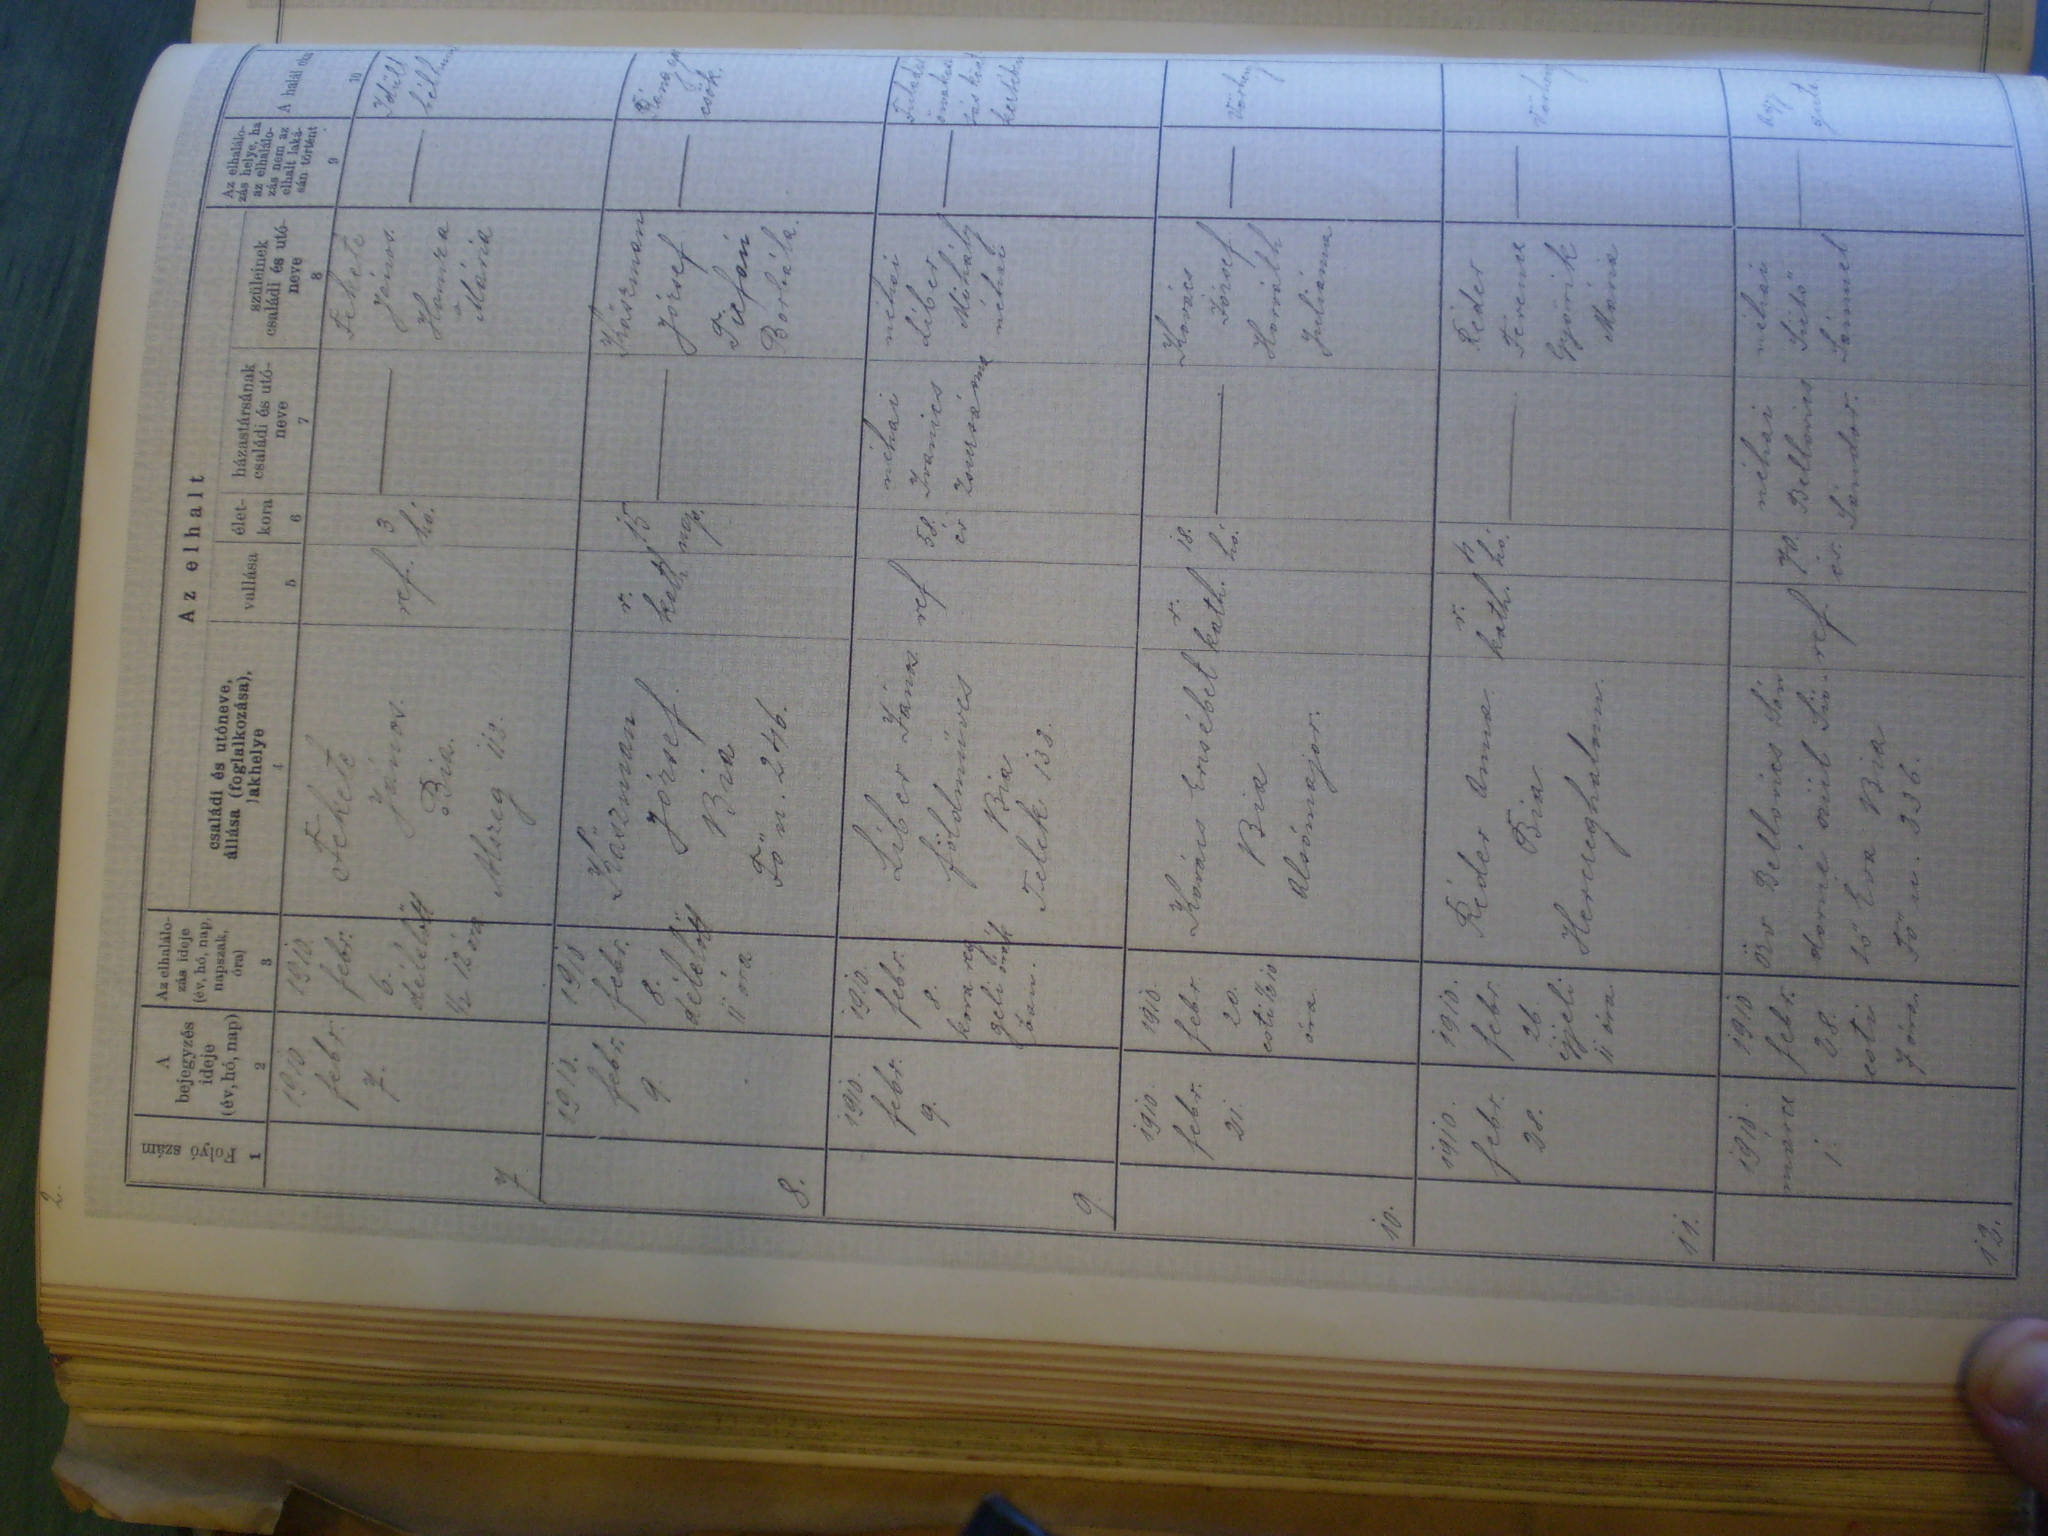 2.
Az elhalt
Folyó szám
A bejegyzés ideje (év, hó, nap)
Az elhalálo-
zás ideje
(év, hó, nap,
napszak,
óra)
családi és utóneve,
állása (foglalkozása),
lakhelye
vallása
élet-
kora
házastársának
családi és utó-
neve
szüleinek
családi és utó-
neve
Az elhalálo-
zás helye, ha
az elhalálo-
zás nem az
elhalt laká-
sán történt
A halál
1 2 3 4 5 6 7 8 9 10
7
1910
febr.
7.
1910.
febr.
6.
délelőtt
½ 12 óra
Fekete
János.
Bia.
ref.
3
hó.
Fekete
János.
Hamza
Mária
8.
1910.
febr.
9.
1910
febr.
8.
délelőtt
11 óra
József.
Bia
Fő u. 246.
r.
kath
15
nap.
József
Borbála.
9
1910.
febr.
9.
1910.
febr.
8.
kora reg
geli órák
Liber János
földműves
Bia
Telek 138.
ref
58.
év
néhai
Ivanics
Zsuzsánna
néhai
Liber
Mihály
néhai
10.
1910.
febr.
21.
1910.
febr.
20.
esti
óra.
Kovács Erzsébet
Bia
Alsómajor.
r.
kath.
18.
hó.
Kovács
József
Horváth
Juliánna
11.
1910.
febr.
28.
1910.
febr.
26.
éjjeli
11 óra.
Réder Anna
Bia
Herceghalom.
r.
kath.
hó.
Réder
Ferenc
Mária
12.
1910.
márcz
1.
1910
febr.
28.
esti
7 óra.
Özv Bellovics Sán
dorné szül Sü-
tő Éva Bia
Fő u. 336.
ref
70.
év.
néhai
Bellovics
Sándor.
néhai
Sütő
Sámuel